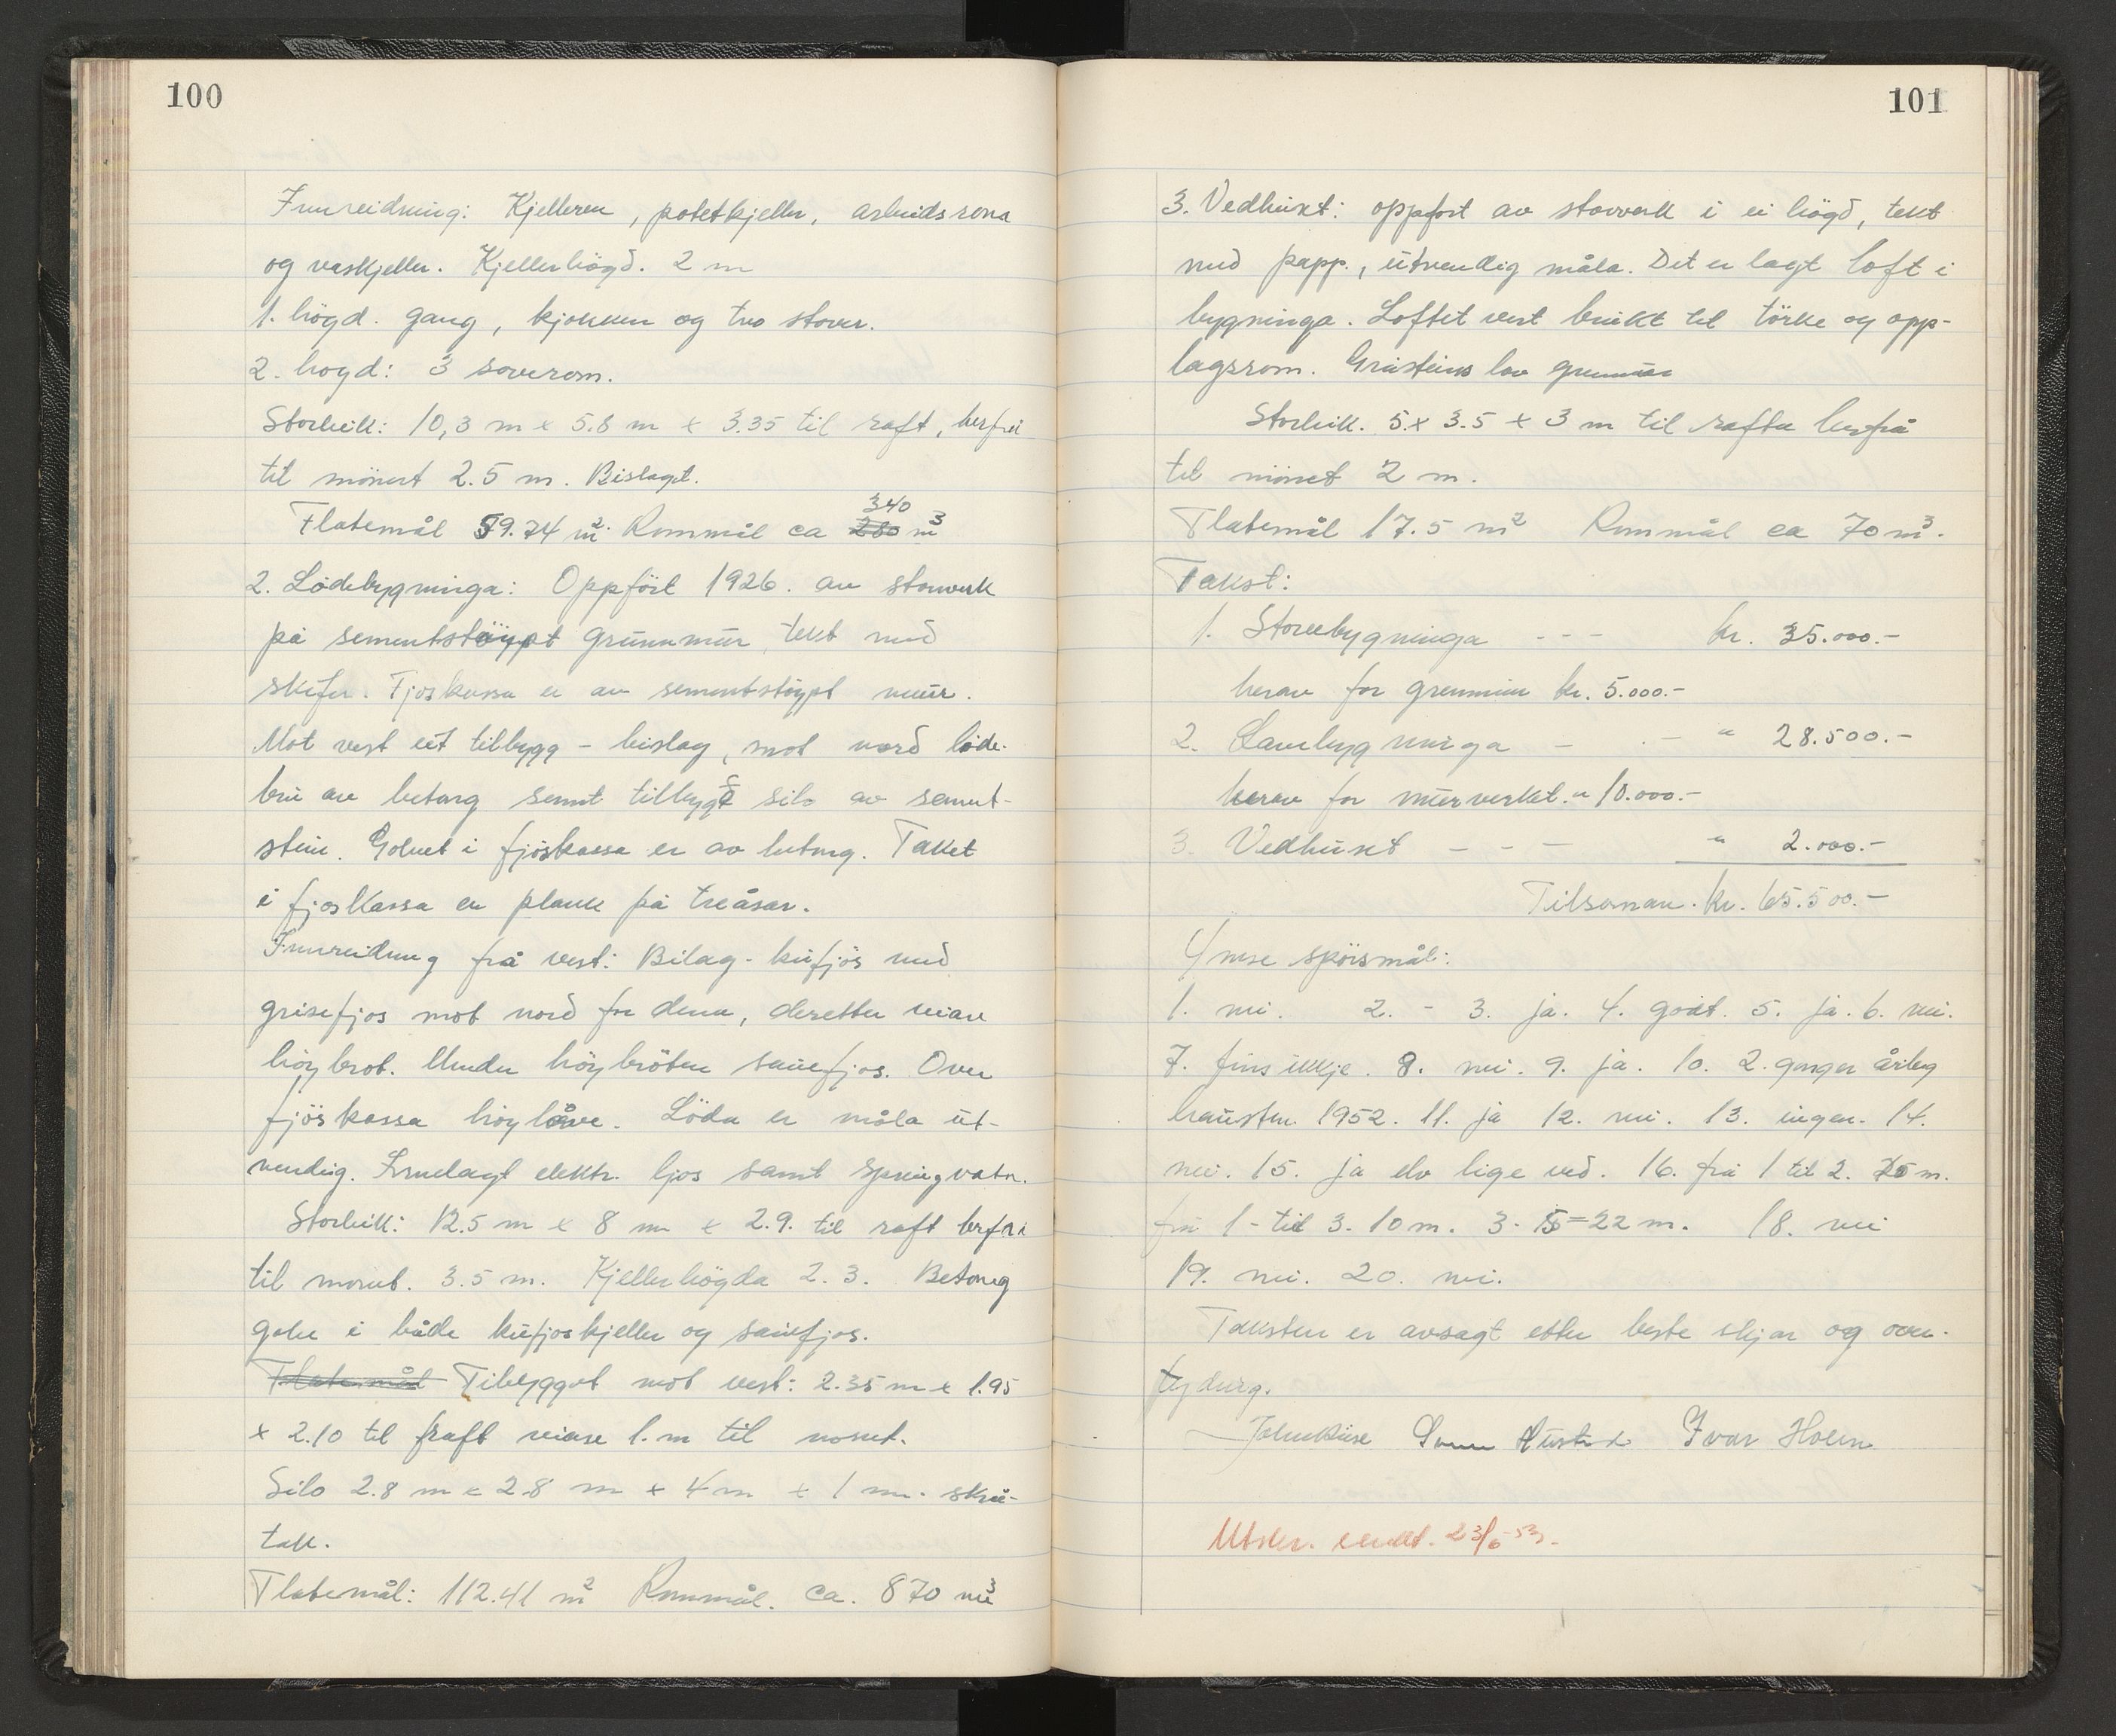 100
Innreidning: Kjelleren, potetkjeller, arbeidsrom
og vaskjeller. Kjellerhögd. 2 m
1. högd. gang, kjokken og tvo stover.
2. hogd: 3 soverom.
Storleik: 10,3 m x 5.8 m x 3.35 til raft, herfrå
til mönest 2.5 m. Bislaget.
Flatemål 59.74 m² Rommål ca 280 340 m³
2. Lödebygninga: Oppfört 1926. av stavverk
på sementstöypt grunnmur tekt med
skifer. Fjoskassa er av sementstöypt mur.
Mot vest eit tilbygg - bislag, mot nord löde-
bru av betong samt tilbygd silo av sement-
stein. Golvet i fjöskassa er av betong. Taket
i fjoskassa er plank på treåsar.
Innreidning frå vest: Bilag - kufjös med
grisefjos mot nord for denn, deretter vian
höybrot. Under höybröten sauefjos. Over
fjöskassa höylåve. Löda er måla ut-
vendig. Innelagt elektr. ljos samt springvatn.
Storleik: 12.5 m x 8 m x 2.9. til raft herfrå
til monet. 3.5 m. Kjellerhögda 2. 3. Betong
golv i både kufjoskjeller og sauefjos.
Flatemål Tibygget mot vest: 2.35 m x 1.95
x 2.10 til raft 1. m til monet.
Silo 2.8 m x 2.8 m x 4 m x 1 m. skrå-
tak.
Flatemål: 112.41 m² Rommål. ca. 870 m³
101
3. Vedhuset: oppfort av stavverk i ei högd, tekt
med papp., utvendig måla. Det er lagt loft i
bygninga. Loftet vert brukt til törke og opp-
lagsrom. Gråsteins lav grunnmur
Storleik. 5.x 3.5 x 3 m til rafta herfrå
til mönet 2 m.
Flatemål 17.5 m² Rommål ca 70 m³.
Takst:
1. Stovebygninga - - - kr. 35.000.-
herav for grunnmur kr. 5.000.-
2. Lauebygninga - . - " 28.500.-
herav for murverket. " 10.000.-
3. Vedhuset - - - " 2.000.-
Tilsaman. kr. 65.500.-
Ymse spörsmål:
1. nei. 2. - 3. ja. 4. godt. 5. ja. 6. nei.
7. fins ikkje. 8. nei. 9. ja. 10. 2. ganger årleg
hausten 1952. 11. ja 12. nei. 13. ingen. 14.
nei. 15. ja elv lige ved. 16. frå 1 til 2. 75 m.
frå 1 - til 3. 10 m. 3 - 15 = 22 m. 18. nei
19. nei. 20. nei.
Taksten er avsagt etter beste skjön og over-
tyding.
Ivar Holen
Utskr. sendt. 23/6-53.